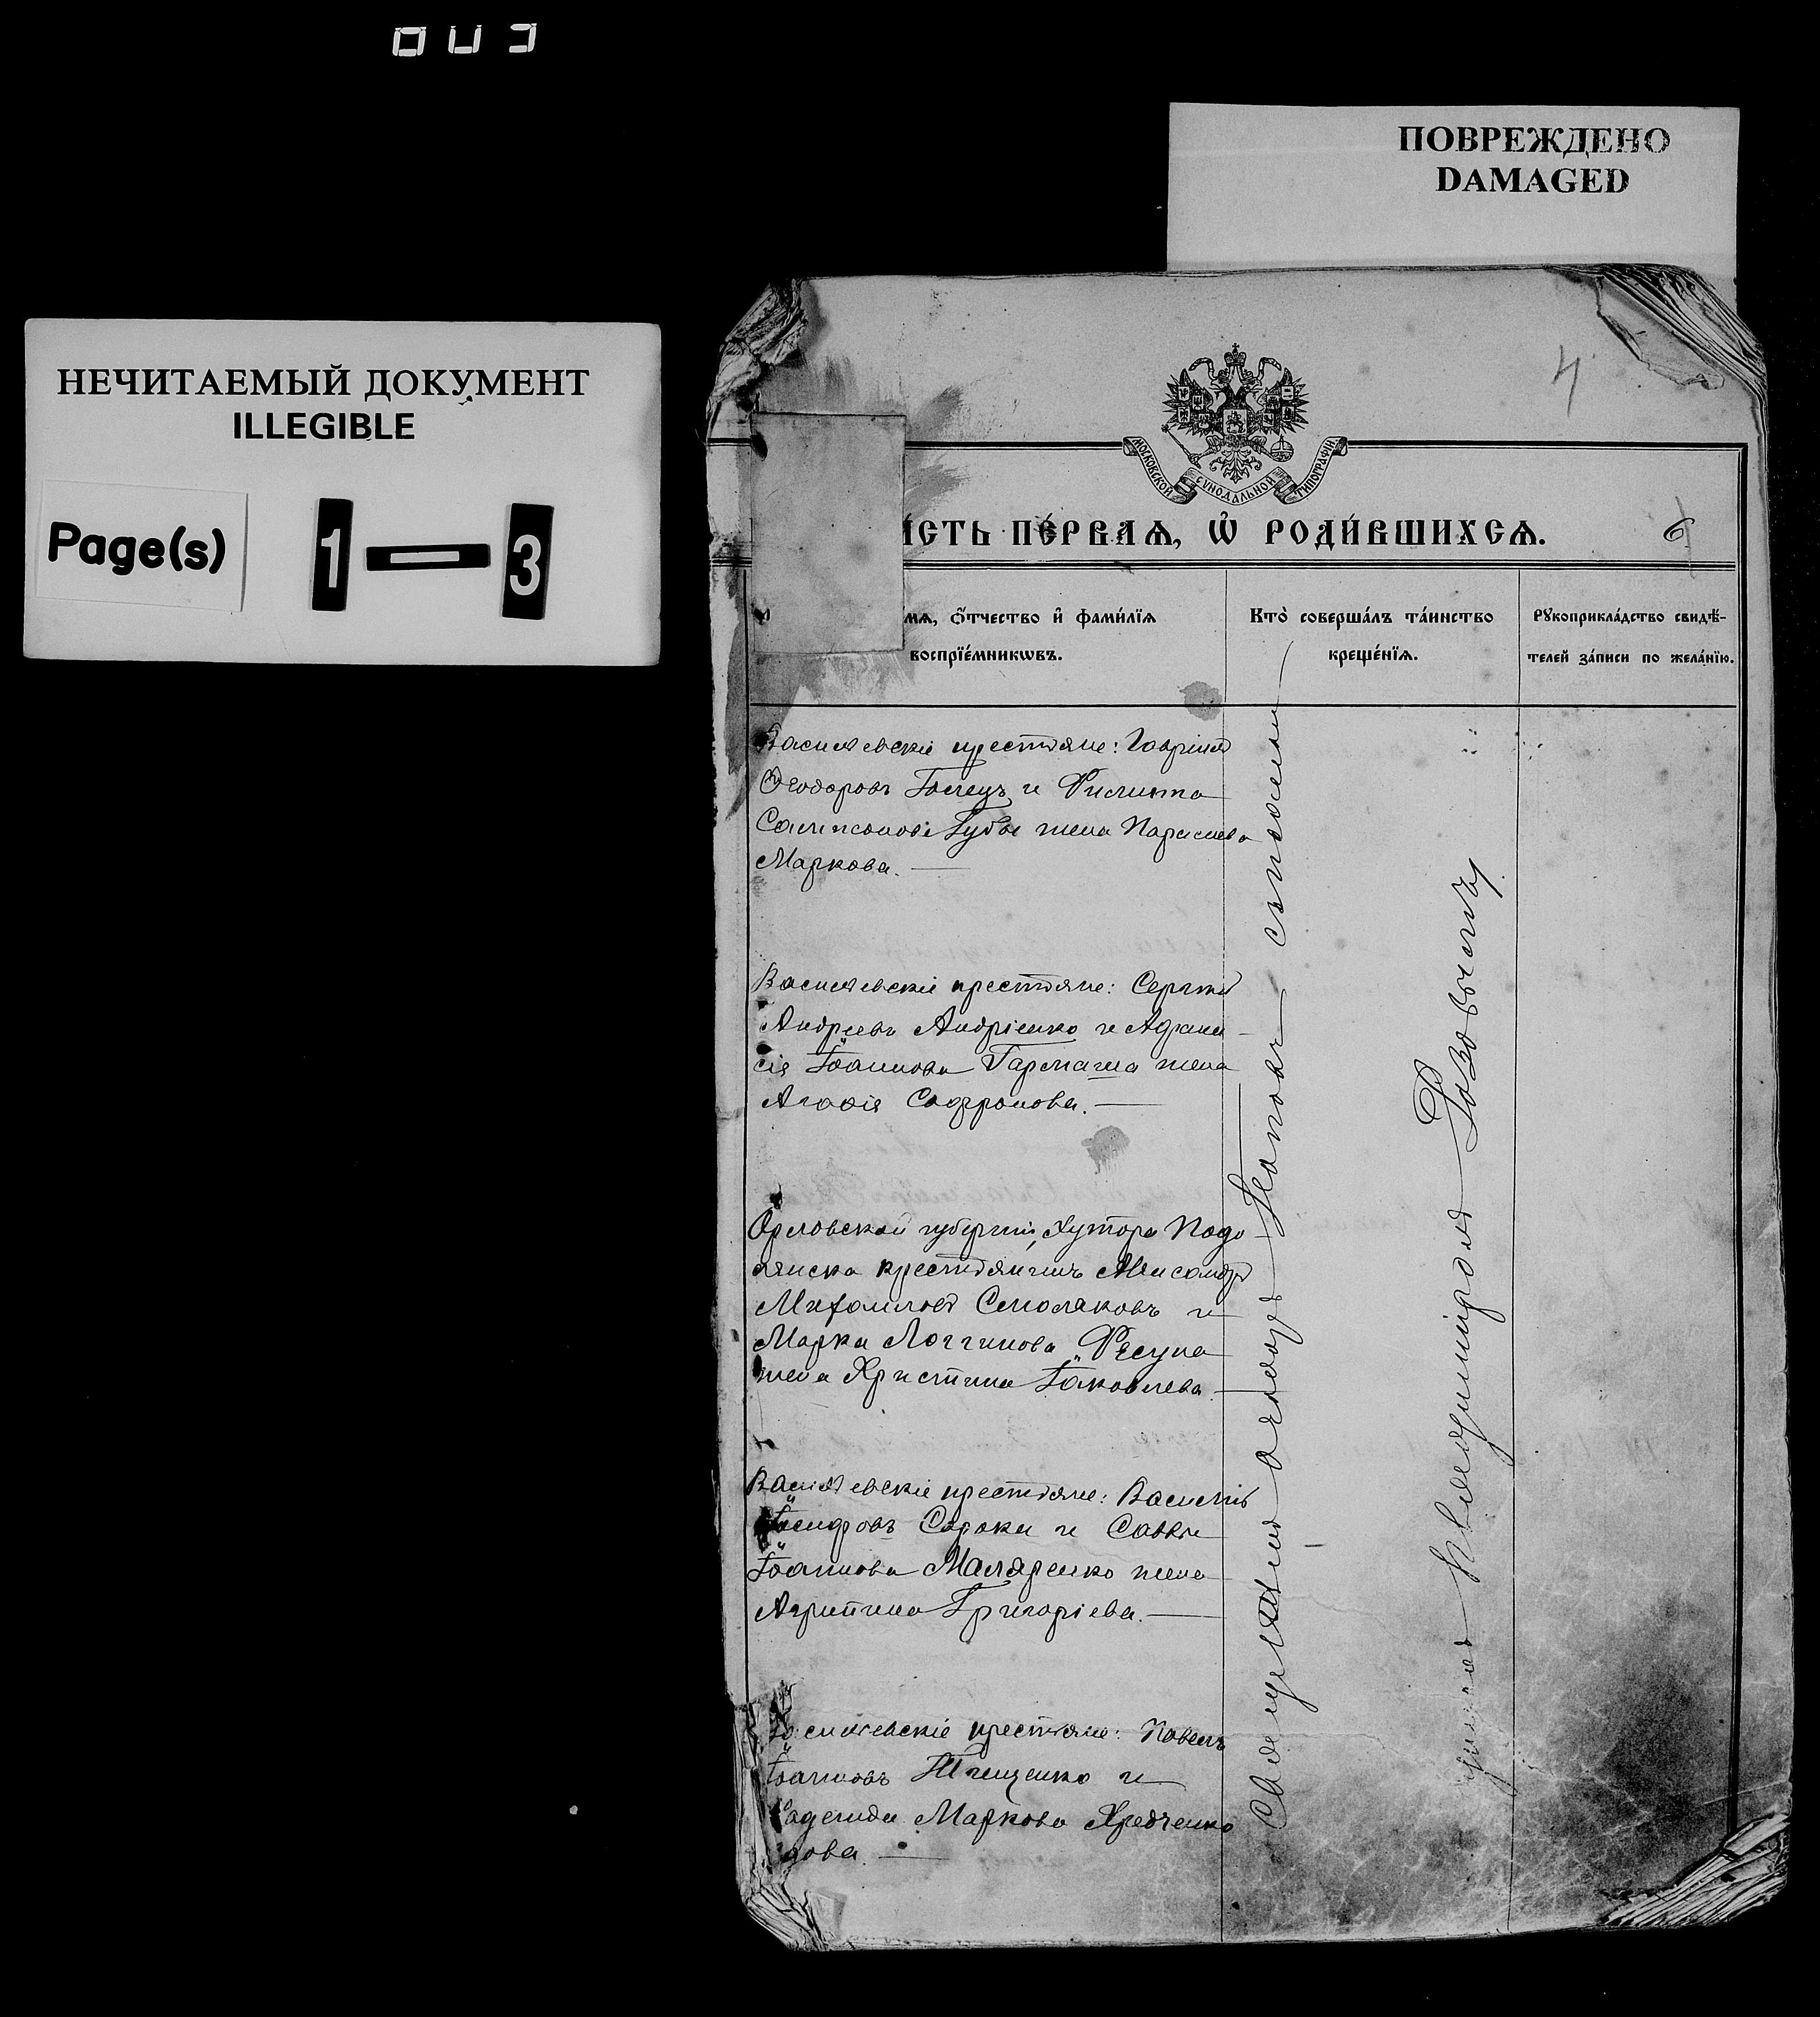 ПОВРЕЖДЕНО
DAMAGED
НЕЧИТАЕМЫЙ ДОКУМЕНТ
ILLEGIBLE
Page(s) 1 — 3
4
МОСКОВСКОЙ СУНОДАЛЬНОЙ ТИПОГРАФІИ
И́СТЬ ПЕ́РВАѦ, Ѡ҆ РОДИ́ВШИХСѦ.
6
мѧ, ѻ҆́тчество и҆ фами́лїѧ
воспрїе́мникѡвъ.
Кто̀ соверша́лъ та́инство
креще́нїѧ.
Рꙋкоприкла́дство свидѣ́-
телей за́писи по жела́нїю.
Васильевскіе крестьяне: Гавріилъ
Ѳеодоровъ Голецъ и Филиппа
Сампсонова Губы жена Параскева
Маркова.
Васильевскіе крестьяне: Сергій
Андреевъ Андріенко и Афана
сія Іоаннова Гармаша жена
Агафія Сафронова.
Орловской губерніи, Хутора Подо
лянска крестьянинъ Александръ
Михаиловъ Смоляковъ и
Марка Логгинова Рясуна
жена Христина Іаковлева.
Васильевскіе крестьяне: Василій
Іосифовъ Сорока и Саввы
Іоаннова Маляренко жена
Агрипина Григоріева.
Васильевскіе крестьяне: Павелъ
Іоанновъ Тищенко и
Маркова
дова.
Священникъ
съ псаломщикомъ